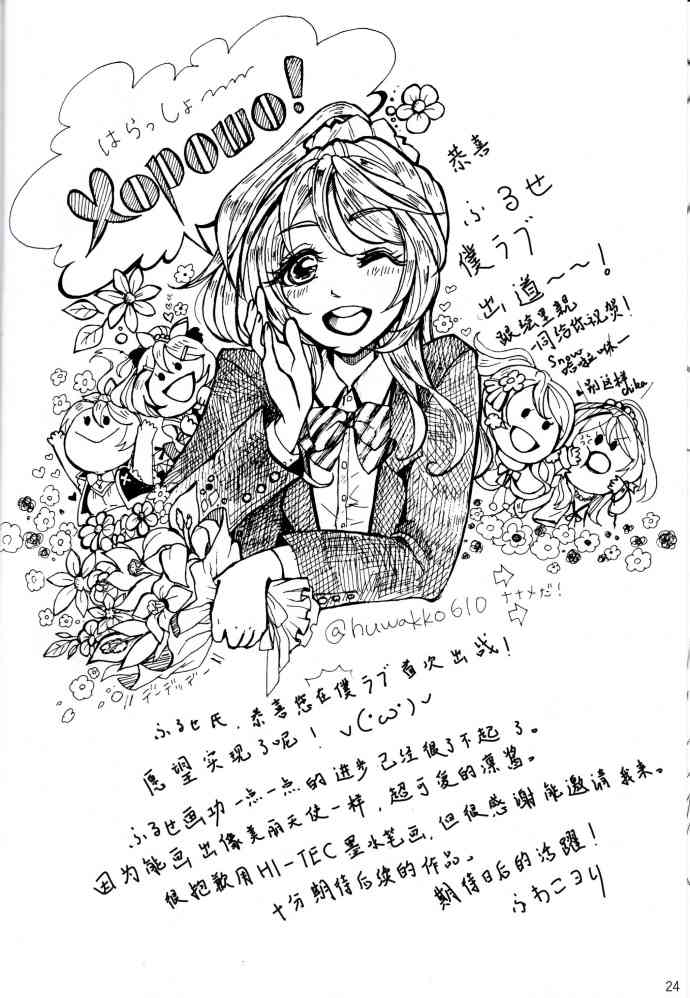 はらっしょ〜〜
Хорошо!
恭喜
ふるせ
僕ラブ
出道~~!
一同给你祝贺!
Snow
哈拉一咻一
别这样
chika
@huwakko610
ナナメだ!
デーデッデー!!
ふるせ氏,恭喜您在僕ラブ首次出战!
愿望实现了呢! v(·ω·)v
ふるせ画功一点一点的进步已经很了不起了。
因为能画出像美丽天使一样,超可爱的凛酱。
很抱歉用HI-TEC墨水笔画,但很感谢能邀请我来。
十分期待后续的作品。
期待日后的活跃!
ふわこより
24